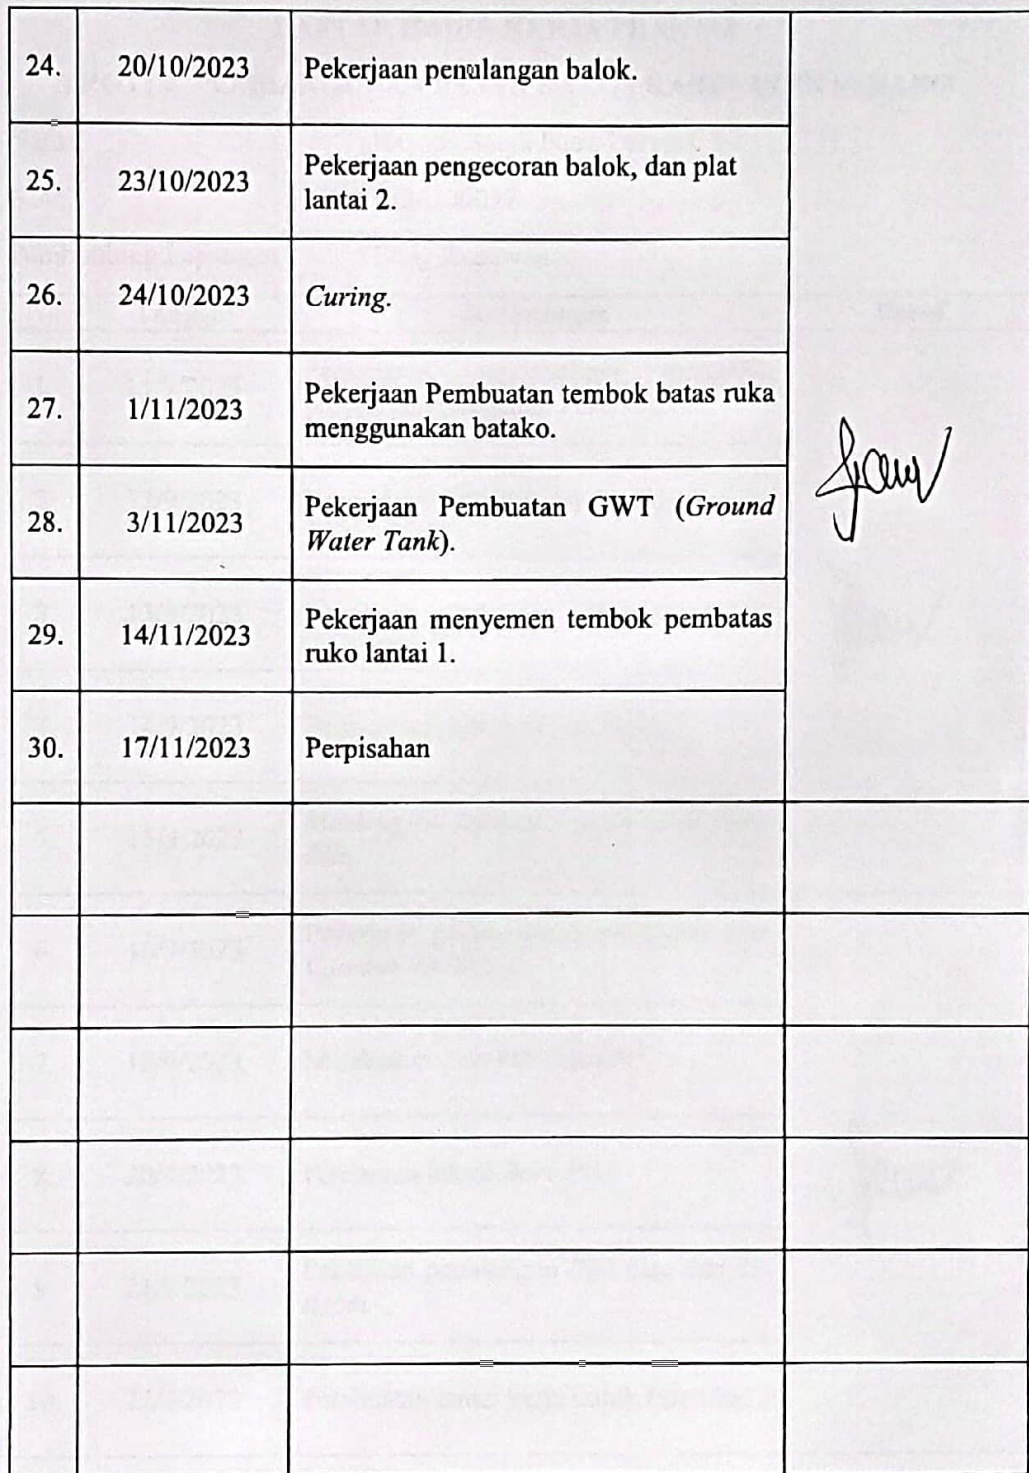 24. 20/10/2023 Pekerjaan penulangan balok.
25. 23/10/2023 Pekerjaan pengecoran balok, dan plat
lantai 2.
26. 24/10/2023 Curing.
27. 1/11/2023 Pekerjaan Pembuatan tembok batas ruka
menggunakan batako.
28. 3/11/2023 Pekerjaan Pembuatan GWT (Ground
Water Tank).
29. 14/11/2023 Pekerjaan menyemen tembok pembatas
ruko lantai 1.
30. 17/11/2023 Perpisahan